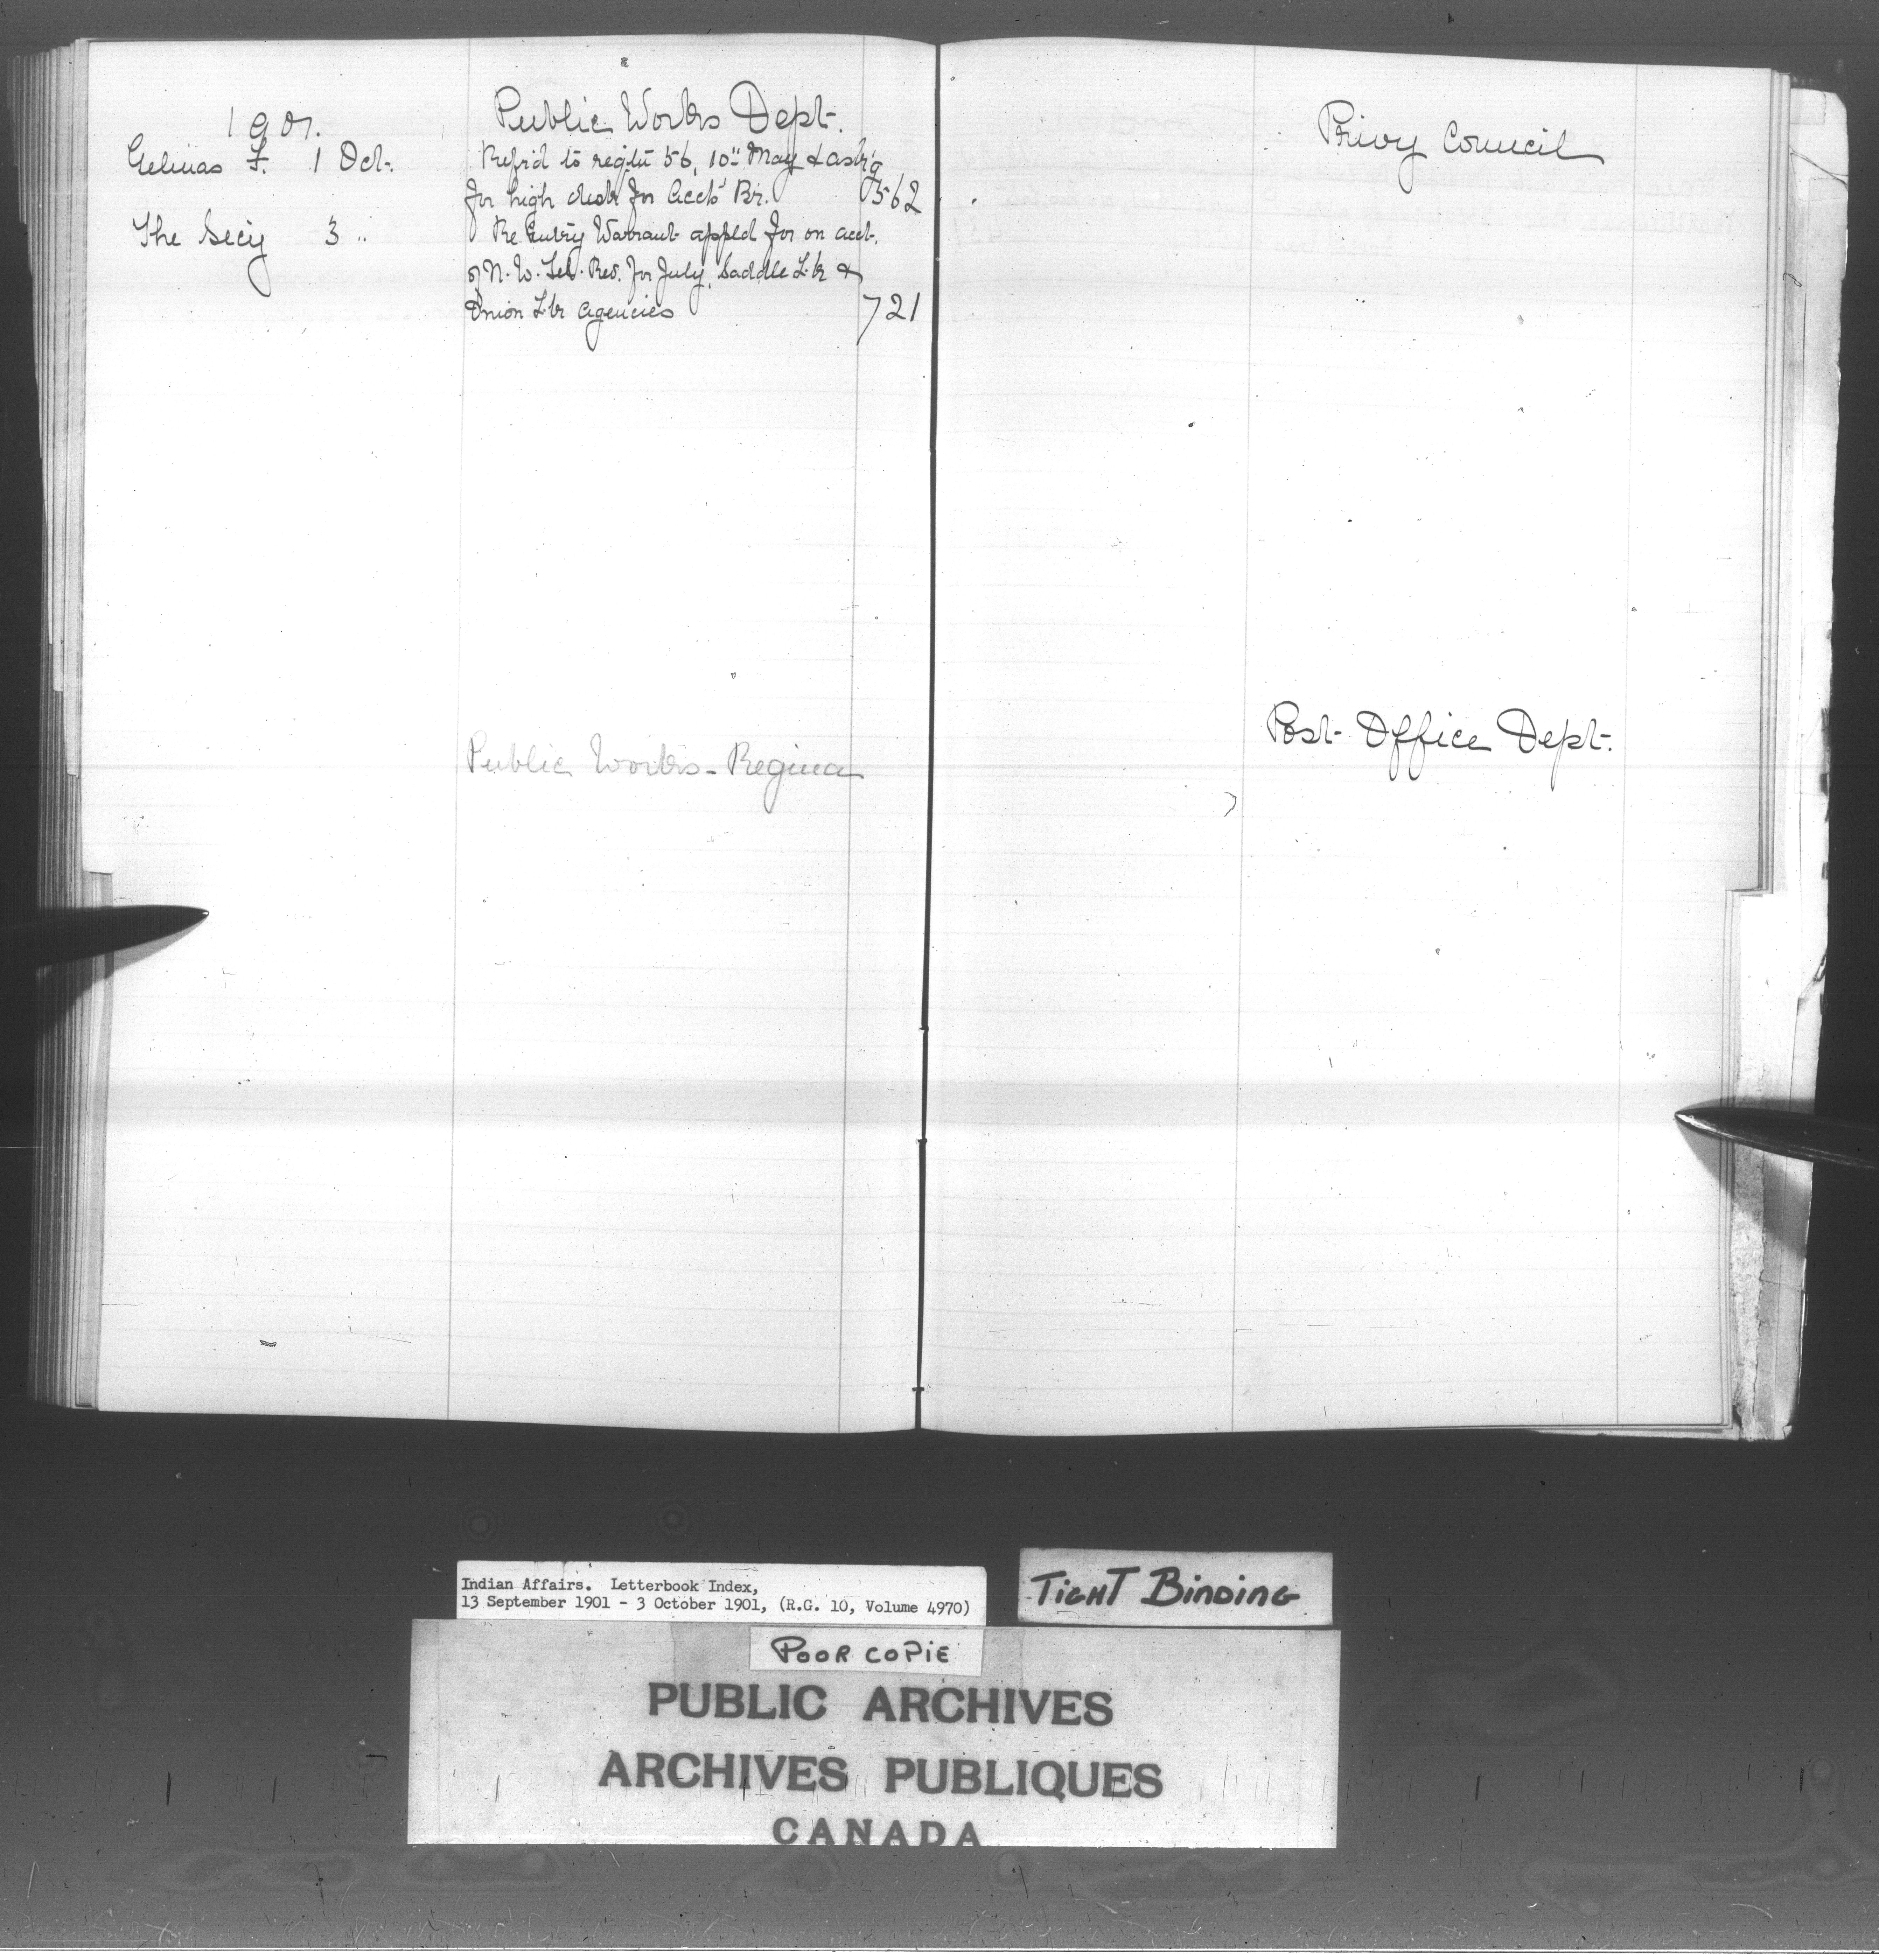 Public Works Dept.
1901.
Gelinas F. 1 Oct. Ref'd to reqtn 56, 10" May & ask'g
for high desk for Acct's Br. 562
The Secy 3 " Re Entry Warrant appld for on acct.
of N. W. Tel. Rev. for July, Saddle Lk &
Onion Lk Agencies 721
Public Works - Regina
Privy Council
Post Office Dept.
Indian Affairs. Letterbook Index,
13 September 1901 - 3 October 1901, (R.G. 10, Volume 4970)
TIGHT BINDING
POOR COPIE
PUBLIC ARCHIVES
ARCHIVES PUBLIQUES
CANADA